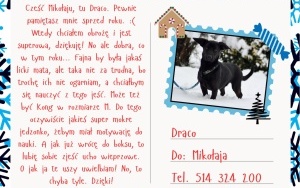 Cześć Mikołaju, tu Draco. Pewnie
pamiętasz mnie sprzed roku. :(
Wtedy chciałem obrożę i jest
superowa, dziękuję! No ale dobra, co
w tym roku... Fajna by była jakaś
licki mata, ale taka nie za trudna, bo
trochę ich nie ogarniam, a chciałbym
się nauczyć z tego jeść. Może też
być Kong w rozmiarze M. Do tego
oczywiście jakieś super mokre
jedzonko, żebym miał motywację do
nauki. A jak już wrócę do boksu, to
lubię sobie zjeść ucho wieprzowe.
O jak ja te uszy uwielbiam! No, to
chyba tyle. Dzięki!
Draco
Do: Mikołaja
Tel. 514 324 200